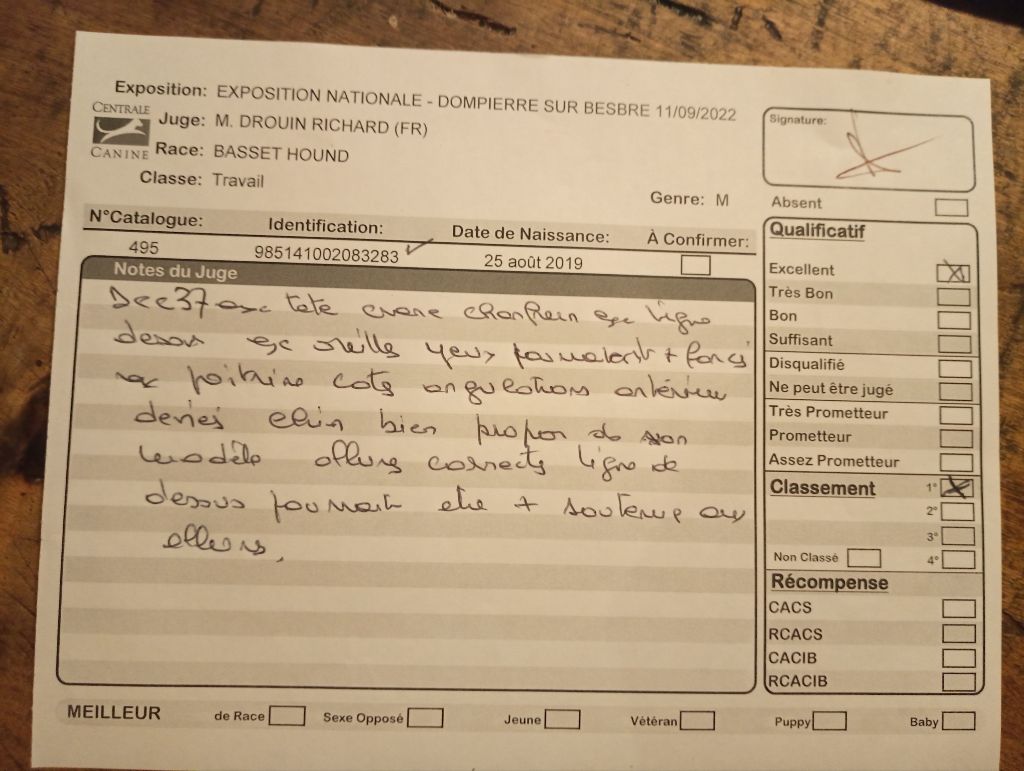 Exposition: EXPOSITION NATIONALE - DOMPIERRE SUR BESBRE 11/09/2022
CENTRALE CANINE
Juge: M. DROUIN RICHARD (FR)
Race: BASSET HOUND
Classe: Travail
Genre: M
Signature:
Absent
N°Catalogue: Identification: Date de Naissance: À Confirmer:
495 985141002083283 25 août 2019
Notes du Juge
37 exc tete crane chanfrein exc ligne
dessus exc oreille yeux pourraient + foncés
exc poitrine cote angulations antérieur
chien bien propor de son
modèle allure correcte ligne de
dessus pourrait etre + soutenue aux
allures.
Qualificatif
Excellent
Très Bon
Bon
Suffisant
Disqualifié
Ne peut être jugé
Très Prometteur
Prometteur
Assez Prometteur
Classement 1°
2°
3°
Non Classé 4°
Récompense
CACS
RCACS
CACIB
RCACIB
MEILLEUR de Race Sexe Opposé Jeune Vétéran Puppy Baby